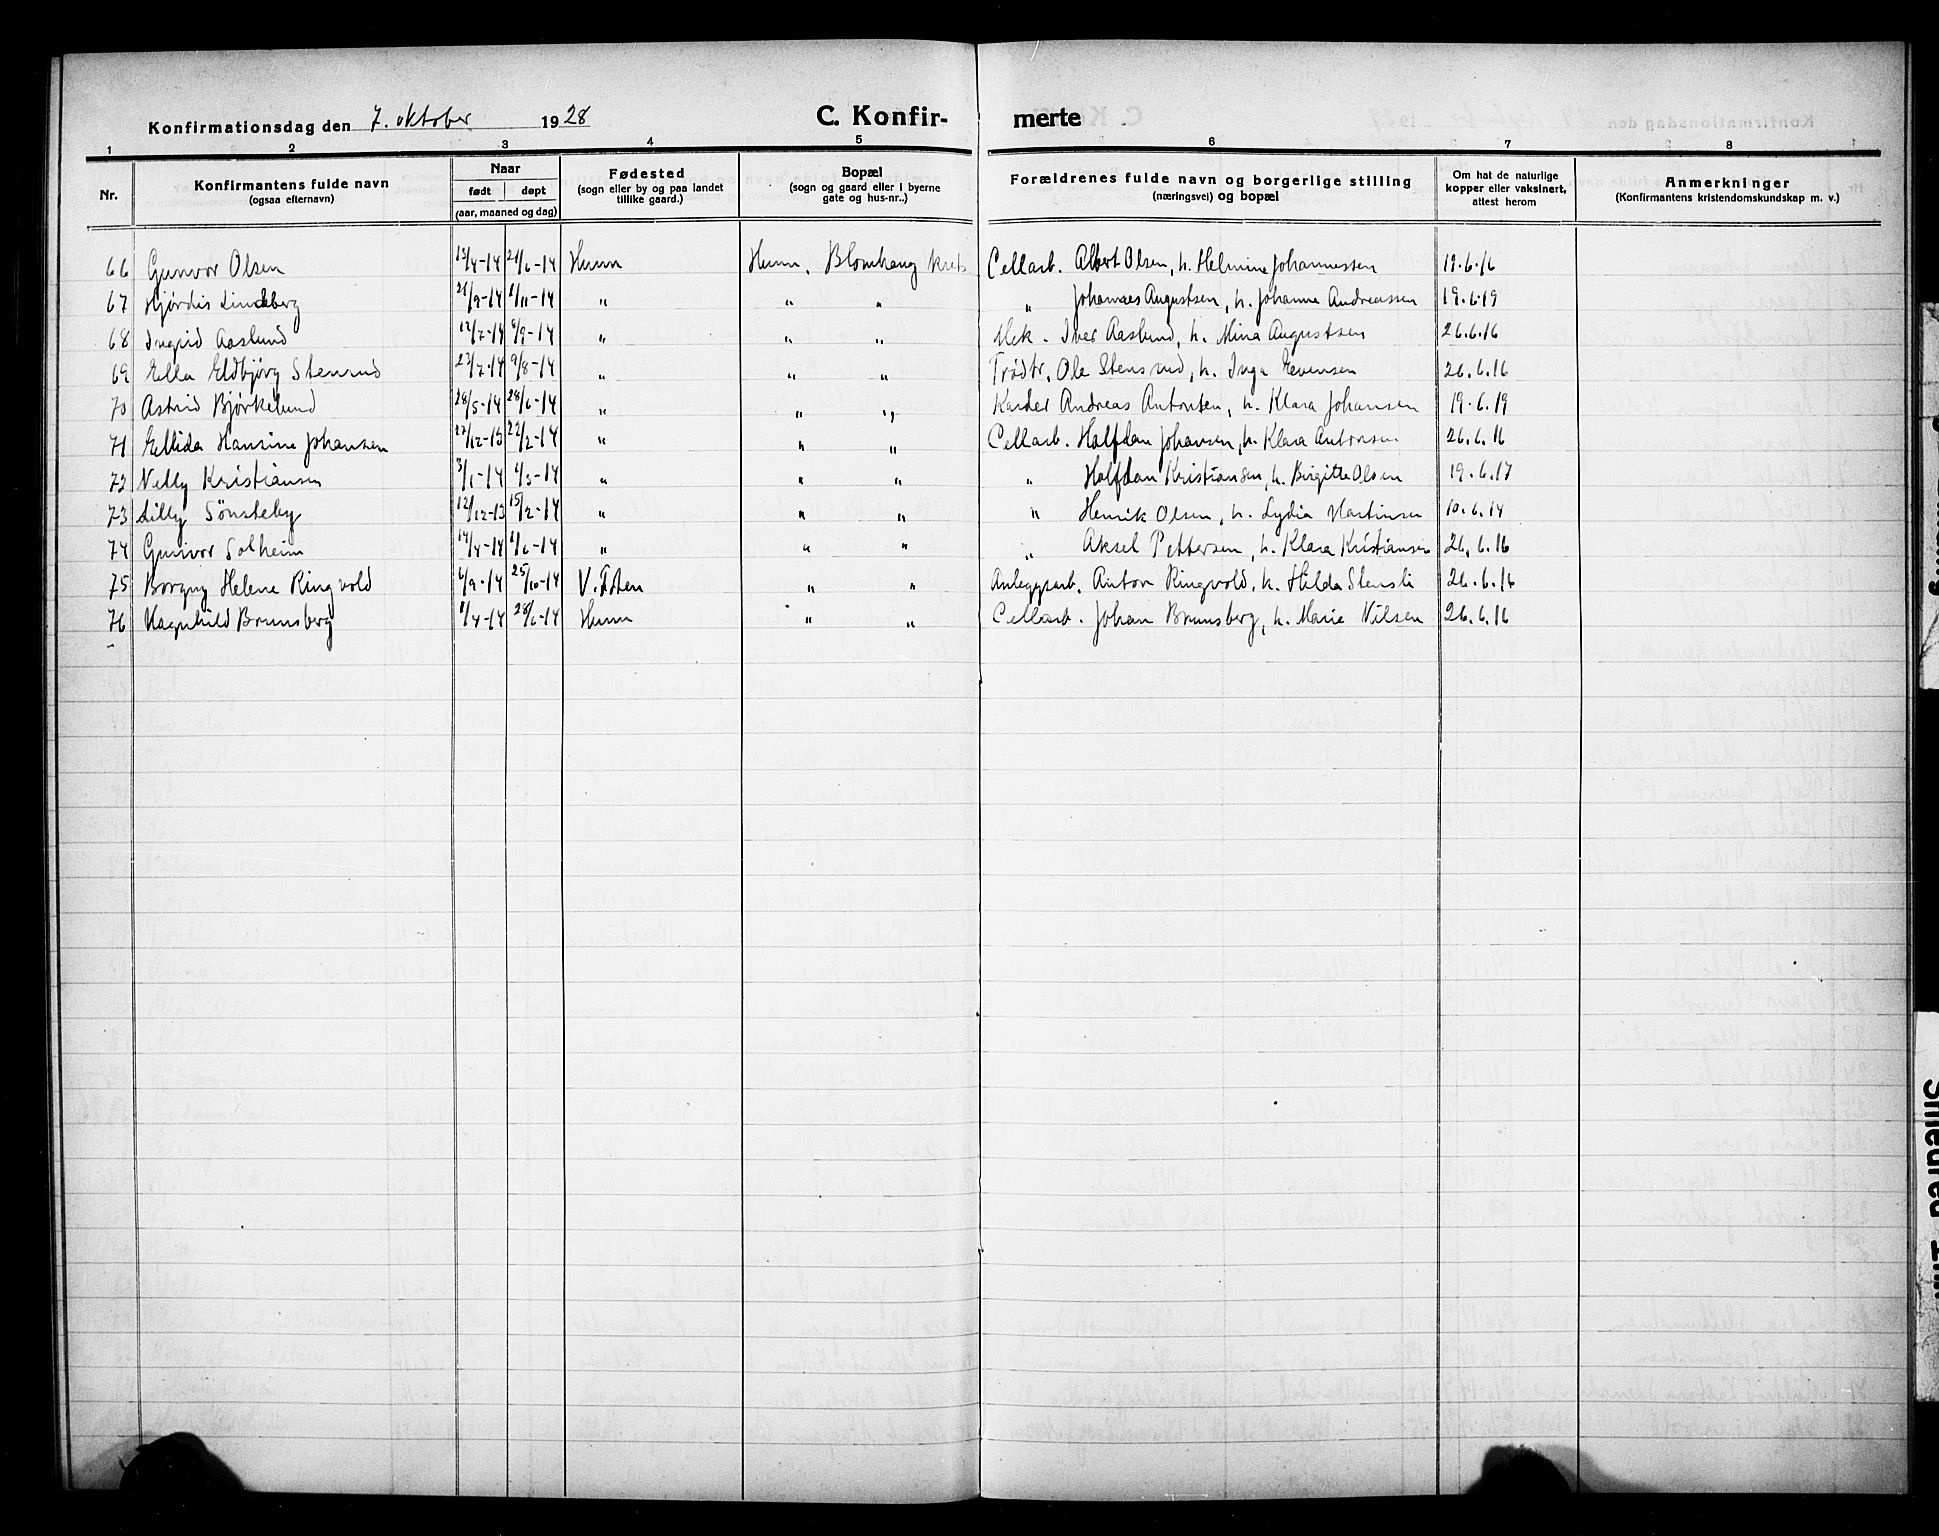 Konfirmationsdag den 7. oktober 1928 C. Konfirmerte
1 2 3 4 5 6 7 8
Nr.
Konfirmantens fulde navn
(ogsaa efternavn)
Naar
født døpt
(aar, maaned og dag)
Fødested
(sogn eller by og paa landet
tillike gaard.)
Bopæl
(sogn og gaard eller i byerne
gate og hus-nr..)
Forældrenes fulde navn og borgerlige stilling
(næringsvei) og bopæl
Om hat de naturlige
kopper eller vaksinert,
attest herom
Anmerkninger
(Konfirmantens kristendomskundskap m. v.)
66 Gunvor Olsen 13/4-14 21/6-14 Hunn Hunn, Blomhaug krets Cellarb. Albert Olsen, h. Helmine Johannessen 19.6.16
67 Hjørdis Lindeberg 21/9-14 1/11-14 " " " " Johannes Augustsen, h. Johanne Andreassen 19.6.19
68 Ingrid Aaslund 12/7-14 6/9-14 " " " Mek. Iver Aaslund, h. Mina Augustsen 26.6.16
69 Ella Eldbjørg Stensrud 23/7-14 9/8-14 " " " Ole Stensrud, h. Inga Evensen 26.6.16
70 Astrid Bjørkelund 28/5-14 28/6-14 " " " Andreas Antonsen, h. Klara Johansen 19.6.19
71 Ellida Hansine Johansen 27/12-13 22/2-14 " " " Cellarb. Halfdan Johansen, h. Klara Antonsen 26.6.16
72 Nelly Kristiansen 3/1-14 1/3-14 " " " " Halfdan Kristiansen, h. Birgitte Olsen 19.6.17
73 Lilly Sønsteby 12/12-13 15/2-14 " " " " Henrik Olsen, h. Lydia Martinsen 10.6.14
74 Gunvor Solheim 14/4-14 1/6-14 " " " " Aksel Pettersen, h. Klara Kristiansen 26.6.16
75 Borgny Helene Ringvold 6/9-14 25/10-14 V. Toten " " Anleggsarb. Anton Ringvold, h. Hilda Stensli 26.6.16
76 Ragnhild Brunsberg 1/4-14 28/6-14 Hunn " " Cellarb. Johan Brunsberg, h. Marie Nilsen 26.6.16